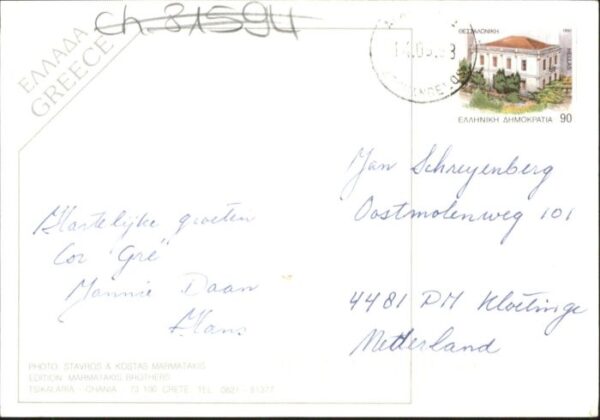 Ch. 81594
ΕΛΛΑΔΑ
GREECE
ΘΕΣΣΑΛΟΝΙΚΗ
HELLAS
ΕΛΛΗΝΙΚΗ ΔΗΜΟΚΡΑΤΙΑ 90
Hartelijke groeten
Cor "Gré"
Jannie Daan
Hans
Jan Schreyenberg
Oostmolenweg 101
4481 PM Kloetinge
Netterland
PHOTO: STAVROS & KOSTAS MARMATAKIS
EDITION: MARMATAKIS BROTHERS
TSIKALARIA - CHANIA 73 100 CRETE TEL. 0821 - 81377